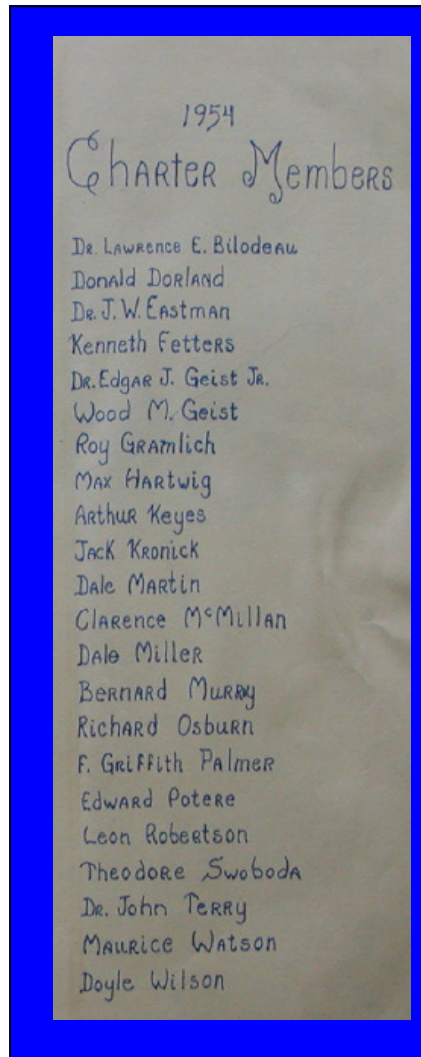 1954
Charter Members
Dr. Lawrence E. Bilodeau
Donald Dorland
Dr. J. W. Eastman
Kenneth Fetters
Dr. Edgar J. Geist Jr.
Wood M. Geist
Roy Gramlich
Max Hartwig
Arthur Keyes
Jack Kronick
Dale Martin
Clarence McMillan
Dale Miller
Bernard Murry
Richard Osburn
F. Griffith Palmer
Edward Potere
Leon Robertson
Theodore Swoboda
Dr. John Terry
Maurice Watson
Doyle Wilson